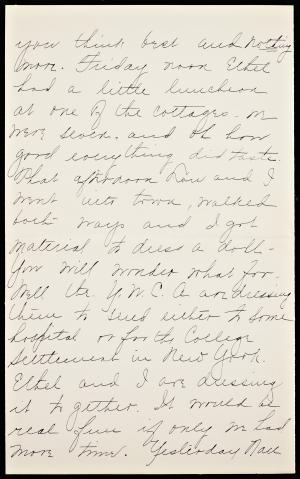 you think best and nothing
more. Friday noon Ethel
had a little luncheon
at one of the cottages - we
were seven - and oh how
good everything did taste.
That afternoon Lou and I
went into town, walked
both ways and I got
material to dress a doll -
you will wonder what for.
Well the Y.W.C.A. are dressing
them to send either to some
hospital or for the College
Settlement in New York.
Ethel and I are dressing
it together. It would be
real fun if only we had
more time. Yesterday